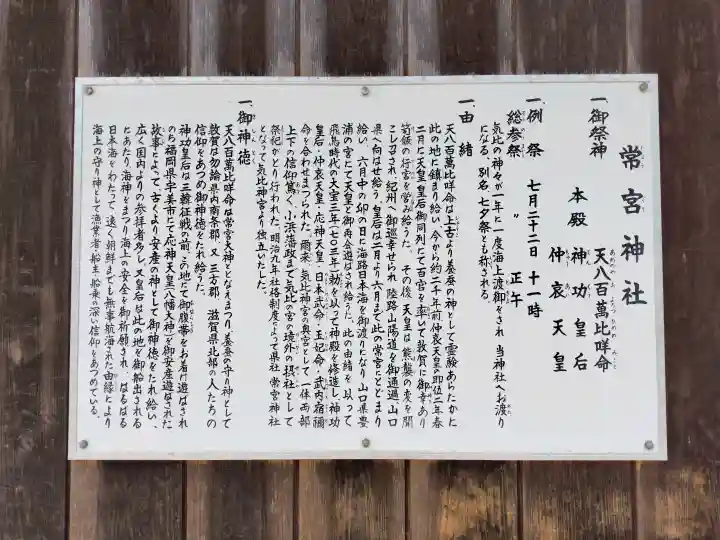 常宮神社
一、御祭神
天八百萬比咩命
本殿 神功皇后
仲哀天皇
一、例祭 七月二十二日 十一時
総参祭 〃 正午
気比の神々が一年に一度海上渡御をされ、当神社へお渡り
になる、別名、七夕祭とも称される。
一、由緒
天八百萬比咩命は上古より養蚕の神として霊験あらたかに
此の地に鎮まり給い、今から約二千年前仲哀天皇の即位二年春
二月に天皇皇后御同列にて百官を率いて敦賀に御幸あり
笥飯の行宮を営み給うた。その後天皇は熊襲の変を聞
こし召され紀州へ御巡幸せられ陸路山陽道を御通過、山口
県へ向はせ給う。皇后は二月より六月まで此の常宮にとどまり
給い、六月中の卯の日に海路日本海を御渡りになり山口県豊
浦の宮にて天皇と御再会遊ばされ給うた。此の由緒を以って
飛鳥時代の大宝三年(七〇三年)勅を以って神殿を修造し神功
皇后・仲哀天皇・応神天皇・日本武命・玉妃命・武内宿禰
命を合わせまつられた。爾来、気比神宮の奥宮として一体両部
上下の信仰篤く、小浜藩政まで気比の宮の境外の摂社として
祭祀かとり行われた。明治九年社格制度によって県社常宮神社
となって気比神宮より独立いたした。
一、御神徳
天八百萬比咩命は常宮大神ととなえまつり、養蚕の守り神として
敦賀は勿論県内南条郡、又三方郡、滋賀県北部の人たちの
信仰をあつめ御神徳をたれ給うた。
神功皇后は三韓征戦の前、この地にて御腹帯をお着け遊ばされ
のち福岡県宇美市にて応神天皇(八幡大神)を御安産遊ばされた
故事によって、古くより安産の神として御神徳をたれ給い、
広く国内よりの参拝者多し、又皇后は此の地を御船出される
にあたり海神をまつり海上の安全を御祈願され、はるばる
日本海をわたって遠く朝鮮までも無事航海された由縁により
海上の守り神として漁業者・船主・船乗の深い信仰をあつめている。